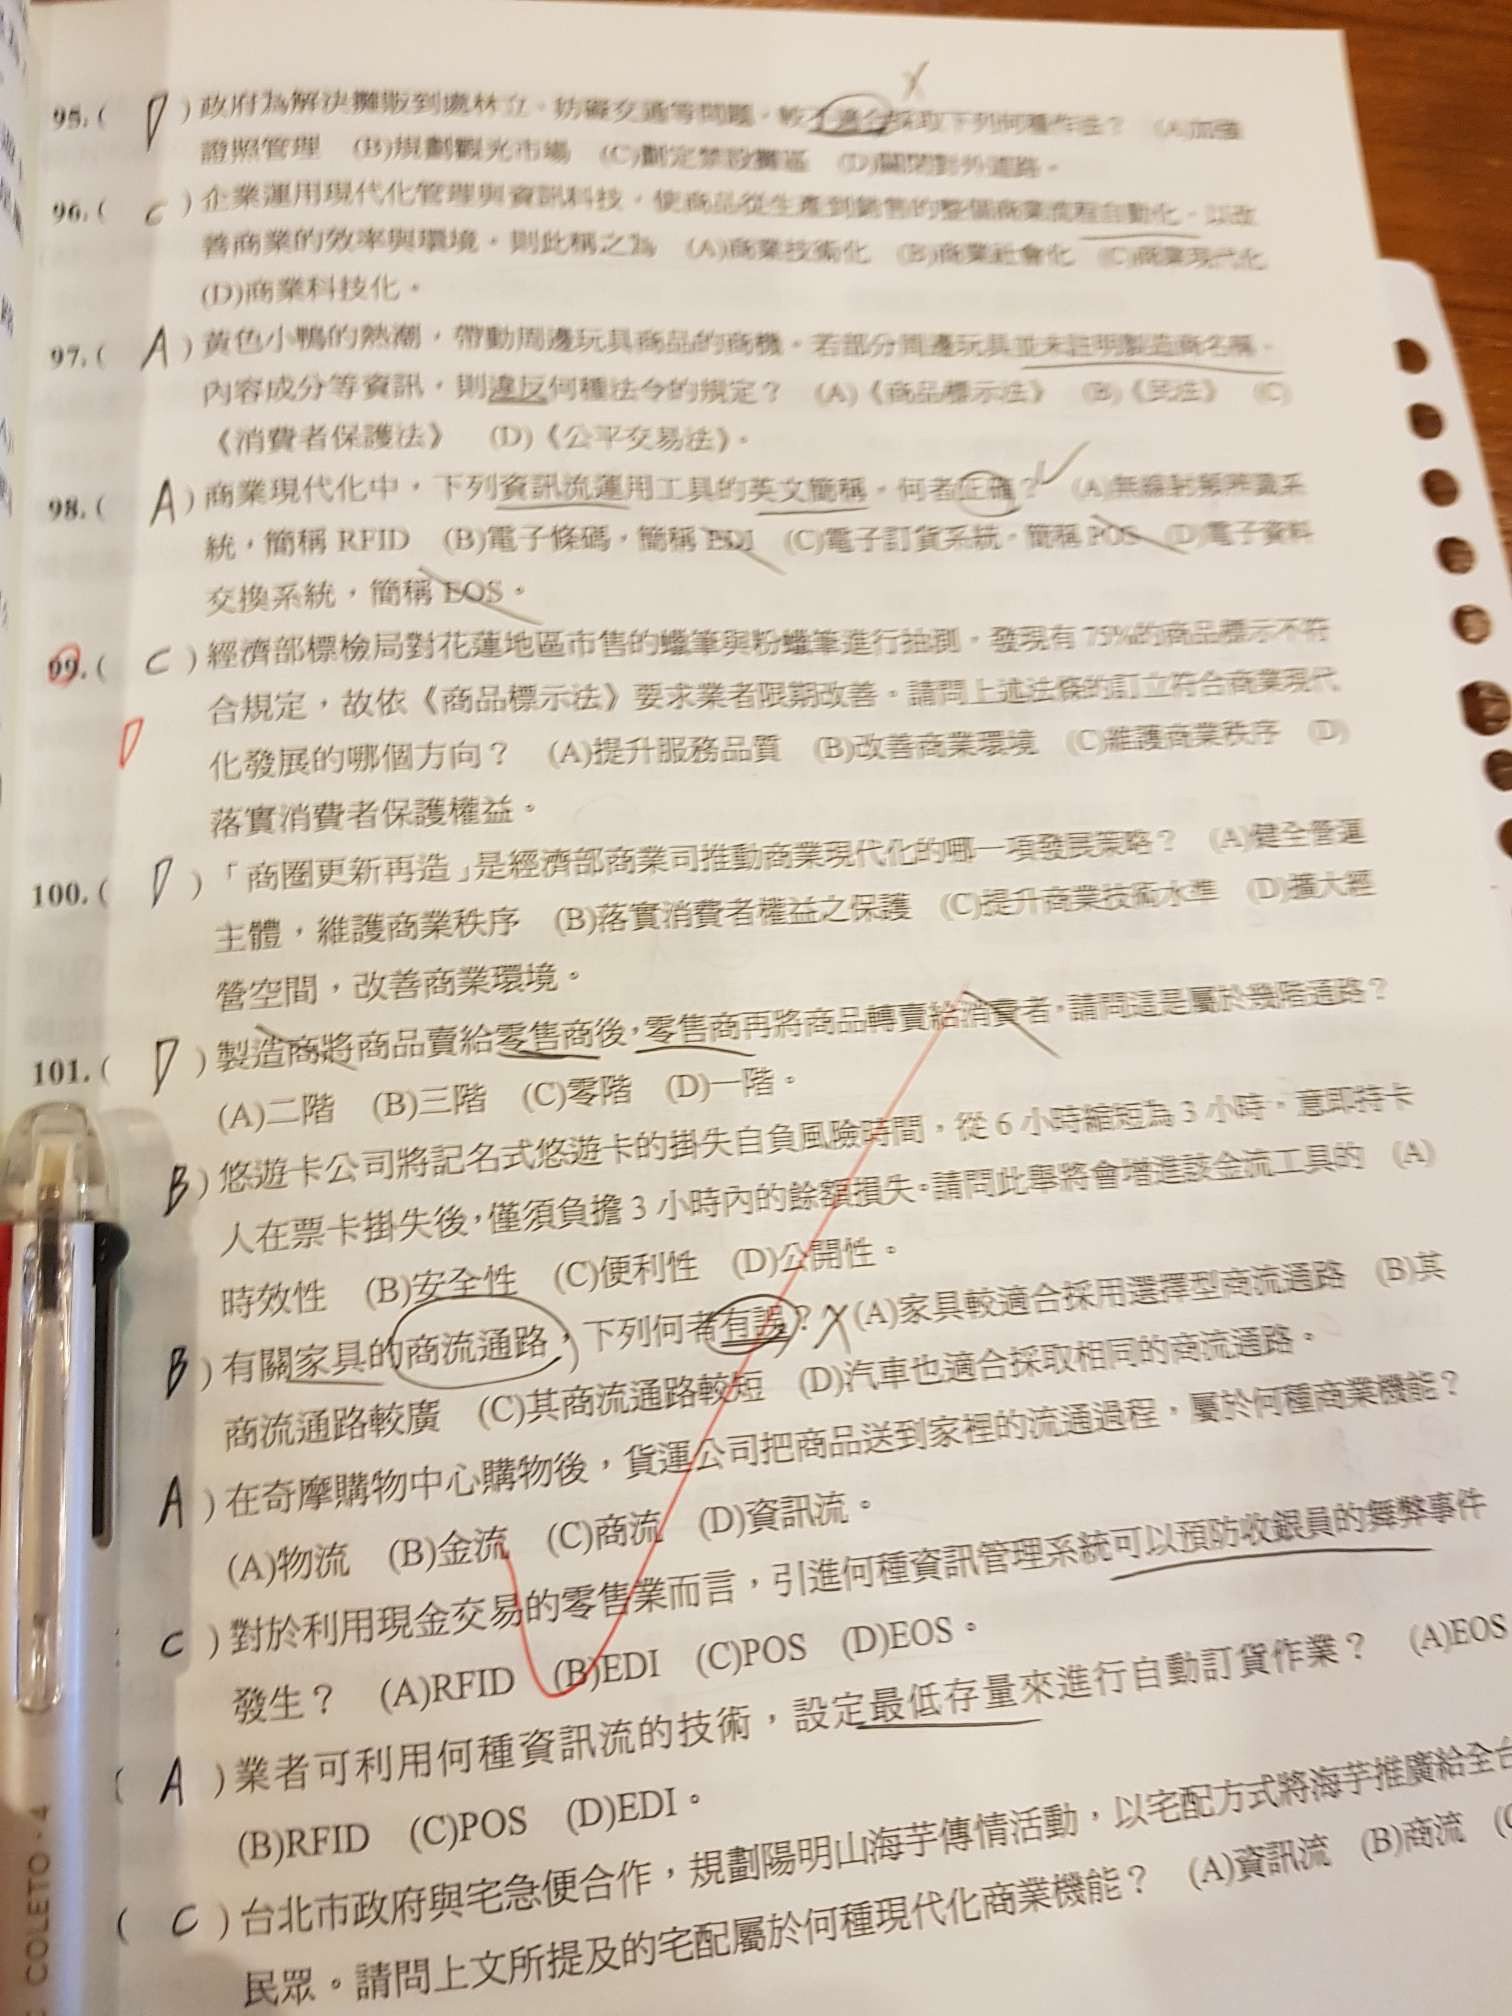 95. ( D ) 政府為解決攤販到處林立、妨礙交通等問題，較不適合採取下列何種作法？ (A)加強
證照管理 (B)規劃觀光市場 (C)劃定禁設攤區 (D)關閉對外道路。
96. ( C ) 企業運用現代化管理與資訊科技，使商品從生產到銷售的整個商業流程自動化，以改
善商業的效率與環境，則此稱之為 (A)商業技術化 (B)商業社會化 (C)商業現代化
(D)商業科技化。
97. ( A ) 黃色小鴨的熱潮，帶動周邊玩具商品的商機。若部分周邊玩具並未註明製造商名稱、
內容成分等資訊，則違反何種法令的規定？ (A)《商品標示法》 (B)《民法》 (C)
《消費者保護法》 (D)《公平交易法》。
98. ( A ) 商業現代化中，下列資訊流運用工具的英文簡稱，何者正確？ (A)無線射頻辨識系
統，簡稱 RFID (B)電子條碼，簡稱 EDI (C)電子訂貨系統，簡稱 POS (D)電子資料
交換系統，簡稱 EOS。
99. ( C ) 經濟部標檢局對花蓮地區市售的蠟筆與粉蠟筆進行抽測，發現有 75%的商品標示不符
合規定，故依《商品標示法》要求業者限期改善。請問上述法條的訂立符合商業現代
D 化發展的哪個方向？ (A)提升服務品質 (B)改善商業環境 (C)維護商業秩序 (D)
落實消費者保護權益。
100. ( D ) 「商圈更新再造」是經濟部商業司推動商業現代化的哪一項發展策略？ (A)健全管運
主體，維護商業秩序 (B)落實消費者權益之保護 (C)提升商業技術水準 (D)擴大經
營空間，改善商業環境。
101. ( D ) 製造商將商品賣給零售商後，零售商再將商品轉賣給消費者，請問這是屬於幾階通路？
(A)二階 (B)三階 (C)零階 (D)一階。
B ) 悠遊卡公司將記名式悠遊卡的掛失自負風險時間，從 6 小時縮短為 3 小時，意即持卡
人在票卡掛失後，僅須負擔 3 小時內的餘額損失。請問此舉將會增進該金流工具的 (A)
時效性 (B)安全性 (C)便利性 (D)公開性。
B ) 有關家具的商流通路，下列何者有誤？ (A)家具較適合採用選擇型商流通路 (B)其
商流通路較廣 (C)其商流通路較短 (D)汽車也適合採取相同的商流通路。
A ) 在奇摩購物中心購物後，貨運公司把商品送到家裡的流通過程，屬於何種商業機能？
(A)物流 (B)金流 (C)商流 (D)資訊流。
C ) 對於利用現金交易的零售業而言，引進何種資訊管理系統可以預防收銀員的舞弊事件
發生？ (A)RFID (B)EDI (C)POS (D)EOS。
( A ) 業者可利用何種資訊流的技術，設定最低存量來進行自動訂貨作業？ (A)EOS
(B)RFID (C)POS (D)EDI。
( C ) 台北市政府與宅急便合作，規劃陽明山海芋傳情活動，以宅配方式將海芋推廣給全台
民眾。請問上文所提及的宅配屬於何種現代化商業機能？ (A)資訊流 (B)商流
COLETO·4